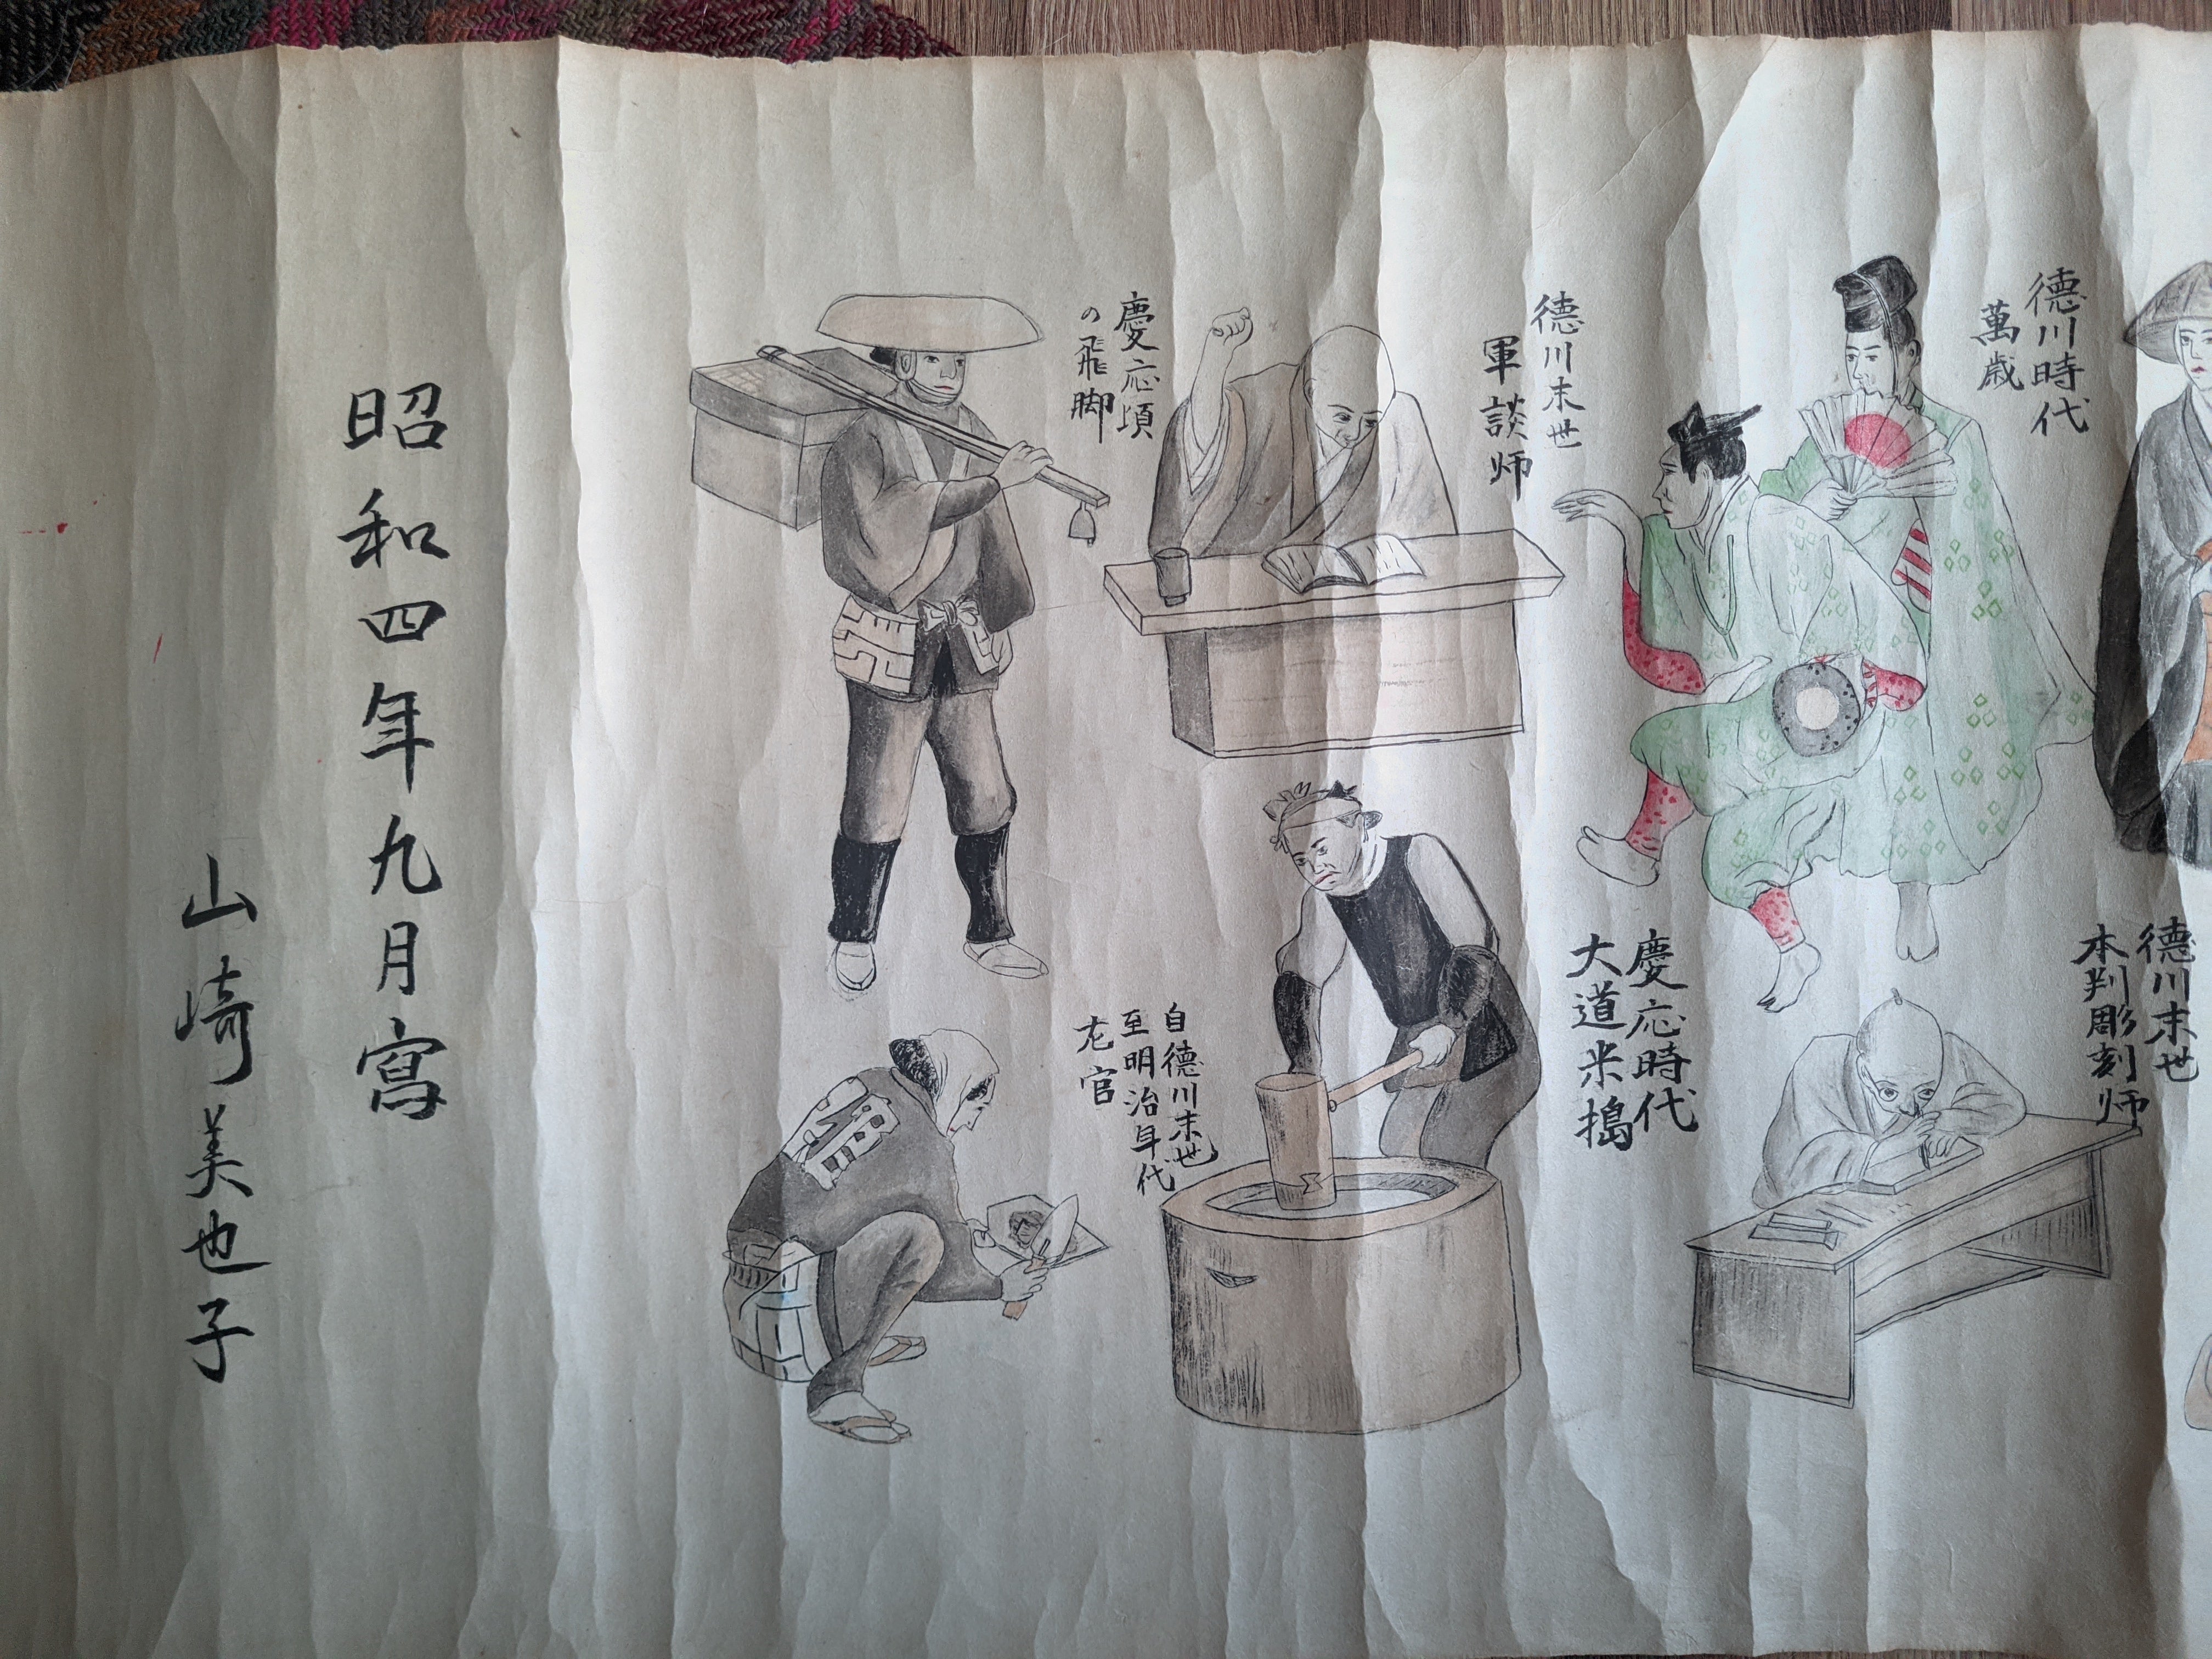 徳川時代
萬歳
徳川末世
本判彫刻師
徳川末世
軍談師
慶応時代
大道米搗
慶応頃
の飛脚
自徳川末世
至明治年代
左官
昭和四年九月寫
山崎美也子